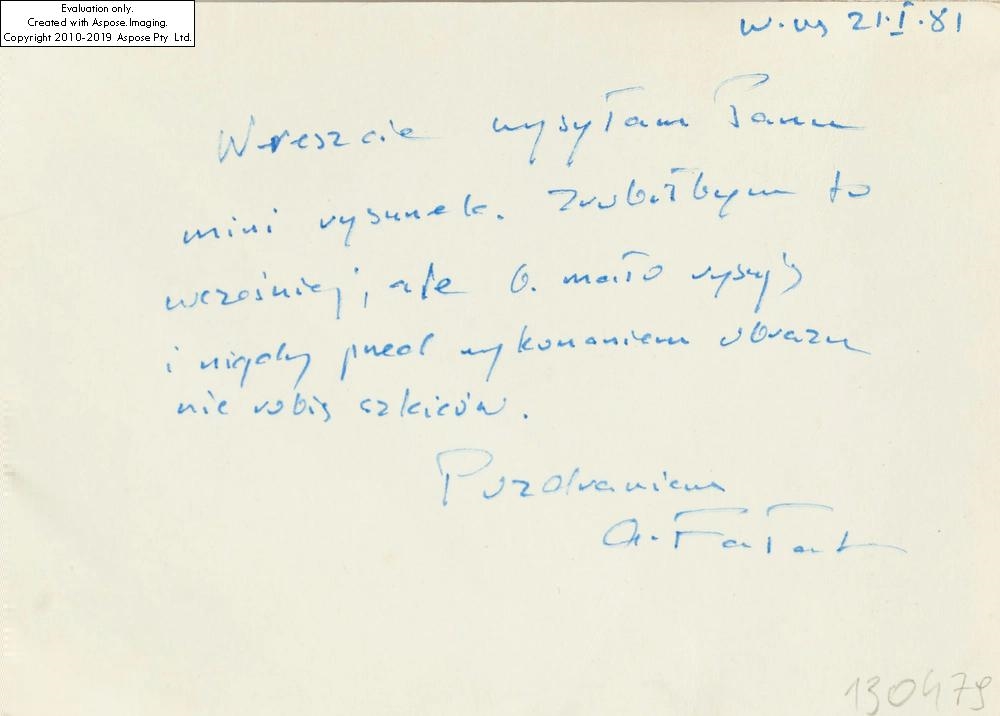 Evaluation only.
Created with Aspose.Imaging.
Copyright 2010-2019 Aspose Pty Ltd.
21.I.81
Wreszcie wysyłam Panu
mini rysunek. Zrobiłbym to
wcześniej, ale b. mało rysuję
i nigdy przed wykonaniem obrazu
nie robię szkiców.
Pozdrawiam
A. Fałat
130479